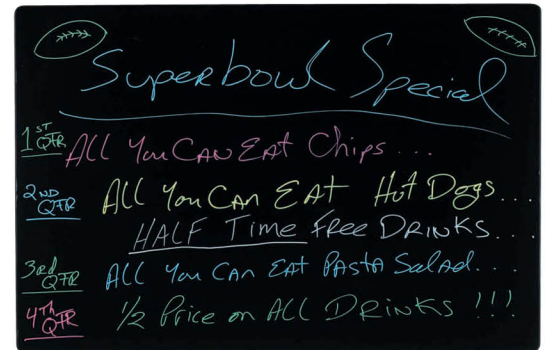 Superbowl Special
1ST QTR ALL You CAN EAT Chips...
2ND QTR ALL You CAN EAT Hot Dogs....
HALF Time FREE DRINKS....
3rd QTR ALL You CAN EAT PASTA Salad....
4TH QTR 1/2 Price on ALL DRINKS !!!